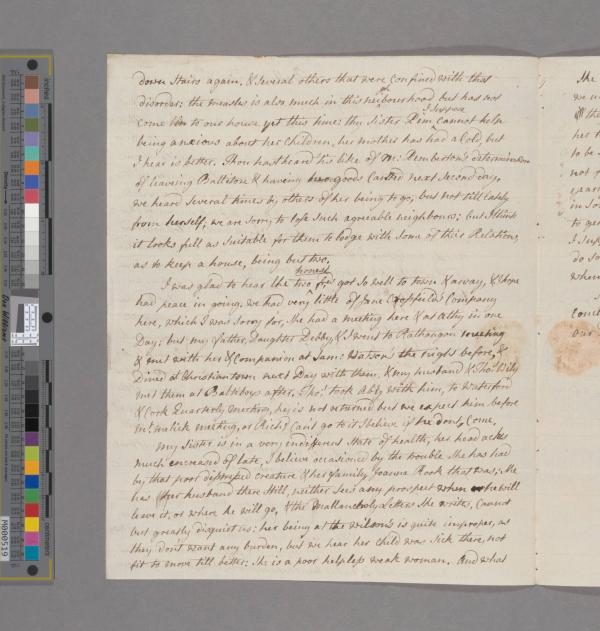 down Stairs again. & Several others that were confined with that
disorder: the measles is also much in this neighbourhood but has not
come to our house yet this time: thy Sister Pim I suppose cannot help
being anxious about her Children, her mother has had a Cold, but
I hear is better. Thou hast heard tis like of M: Pemberton's determination
of leaving Ballitore & having goods Canted next Second day,
we heard Several times by others of her being to go; but not till lately
from herself; we are sorry to lose such agreeable neighbours; but I think
it looks full as suitable for them to lodge with some of their Relations
as to keep a house, being but two.
I was glad to hear the two honest frds got so well to town & away, & hope
had peace in going. we had very little of Jane Company
here, which I was sorry for, She had a meeting here & at Athy in one
Day; but my father, Daughter Debby, & I went to Rathangan meeting
& met with her & Companion at Sam: Watsons the night before, &
Dined at Christian town next Day with them, & my husband & Tho: Wily
met them at Baltiboys after. Tho: took Abby with him, to Waterford
& Cork Quarterly meeting, he is not returned but we expect him before
Mt. melick meeting, or Rich: Can't go to it I believe if he don't Come.
My Sister is in a very indifferent State of health, her head aches
much encreased of late, I believe occasioned by the trouble She has had
by that poor distressed creature & her family, Joanna Rook that was; She
has her husband there Still, neither sees any prospect when he will
leave it, or where he will go, & the Mallancholy Letters She writes, Cannot
but greatly disquiet us: her being at the wilsons is quite improper, as
they dont want any burden, but we hear her child was Sick there, not
fit to move till better: She is a poor helpless weak woman. And what
She
we
the
her t
to be
not
in So
to ge
I sup
do so
when
conc
our
inches
centimeters
M000519